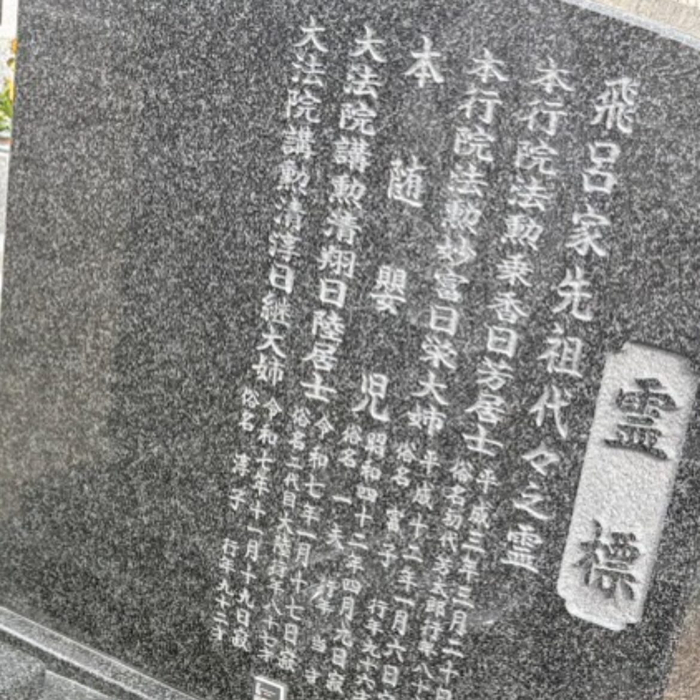 霊標
飛呂家先祖代々之霊
本行院法勲秉香日芳居士 平成三年三月二十日
俗名初代芳太郎行年八十
本行院法勲妙富日栄大姉 平成十二年一月六日
俗名 富子 行年九十六才
本随嬰児 昭和四十二年四月九日寂
俗名 一夫 行年 当才
大法院講勲清翔日陸居士 令和七年一月十七日寂
俗名二代目大陸行年八十七才
大法院講勲清淳日継大姉 令和七年十一月十九日寂
俗名 淳子 行年九十二才